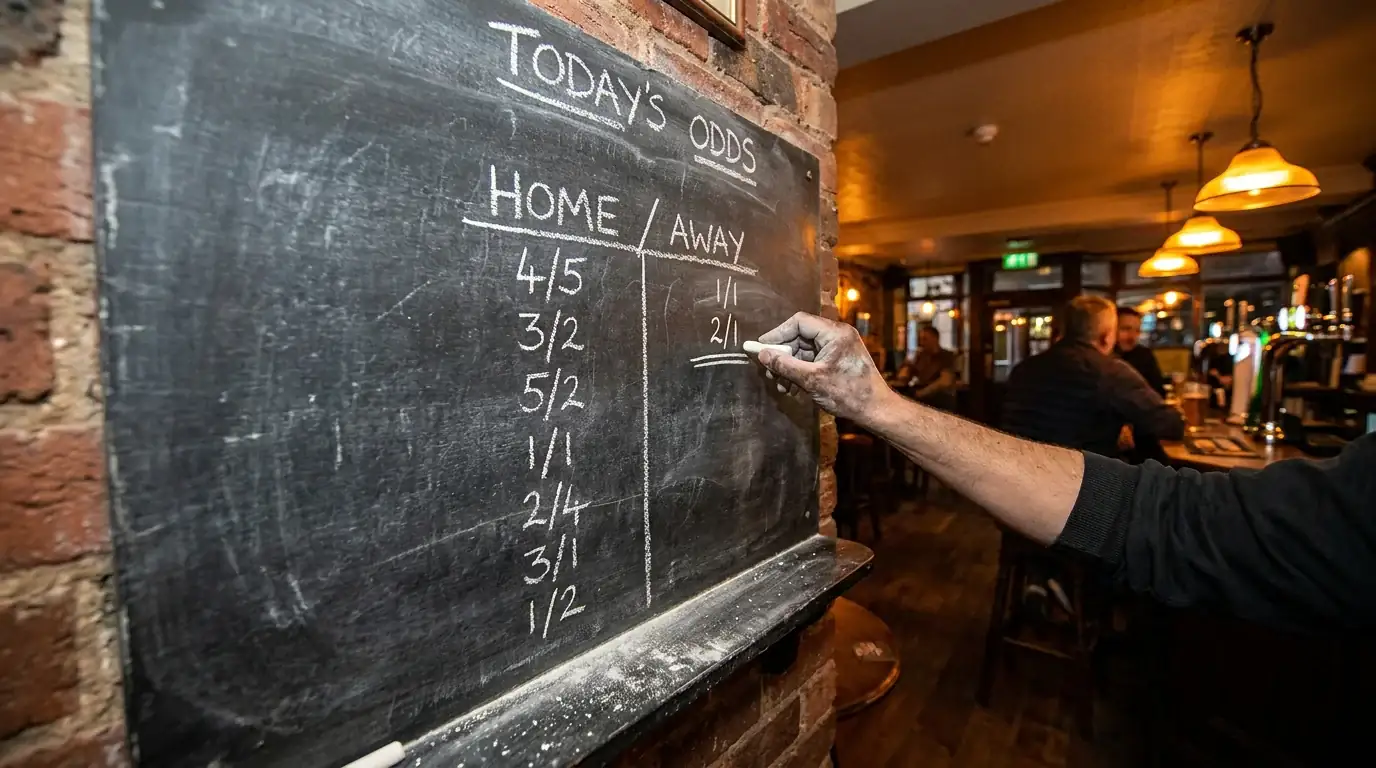 TODAY'S ODDS
HOME / AWAY
4/5 1/1
3/2 2/1
5/2
1/1
2/4
3/1
1/2